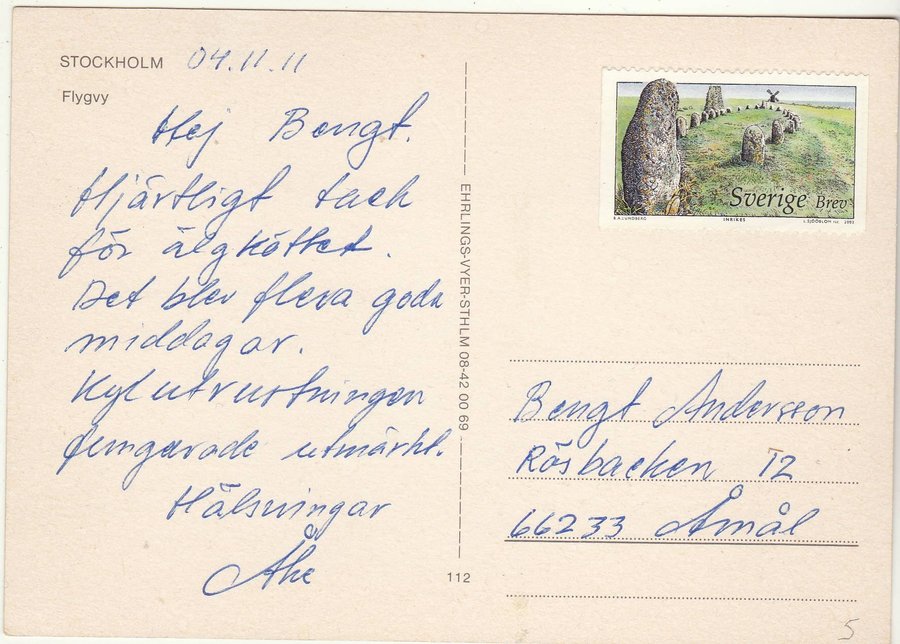 STOCKHOLM 04.11.11
Flygvy
Hej Bengt.
Hjärtligt tack
för älgköttet.
Det blev flera goda
middagar.
Kylutrustningen
fungerade utmärkt.
Hälsningar
Åke
EHRLINGS-VYER-STHLM 08-42 00 69
112
Sverige Brev
B.A.LUNDBERG INRIKES L.SJÖÖBLOM sc. 2002
Bengt Andersson
Rösbacken 12
66233 Åmål
5